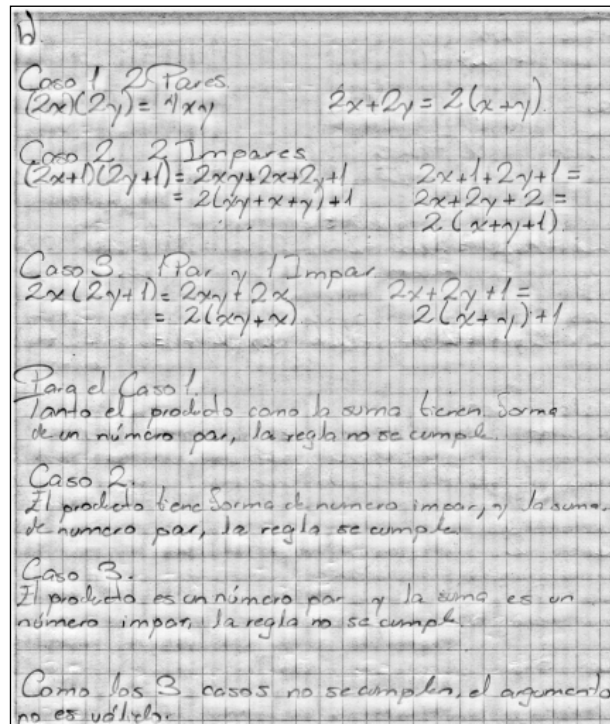 b)
Caso 1 2 Pares
(2x)(2y) = 4xy 2x+2y = 2(x+y)
Caso 2 2 Impares
(2x+1)(2y+1) = 2xy+2x+2y+1 2x+1+2y+1 =
= 2(xy+x+y)+1 2x+2y+2 =
2(x+y+1)
Caso 3. 1 Par y 1 Impar
2x(2y+1) = 2xy+2x 2x+2y+1 =
= 2(xy+x) 2(x+y)+1
=
Para el Caso 1.
Tanto el producto como la suma tienen forma
de un número par, la regla no se cumple.
Caso 2.
El producto tiene forma de numero impar, y la suma,
de numero par, la regla se cumple.
Caso 3.
El producto es un número par y la suma es un
número impar, la regla no se cumple.
Como los 3 casos no se cumplen, el argumento
no es válido.